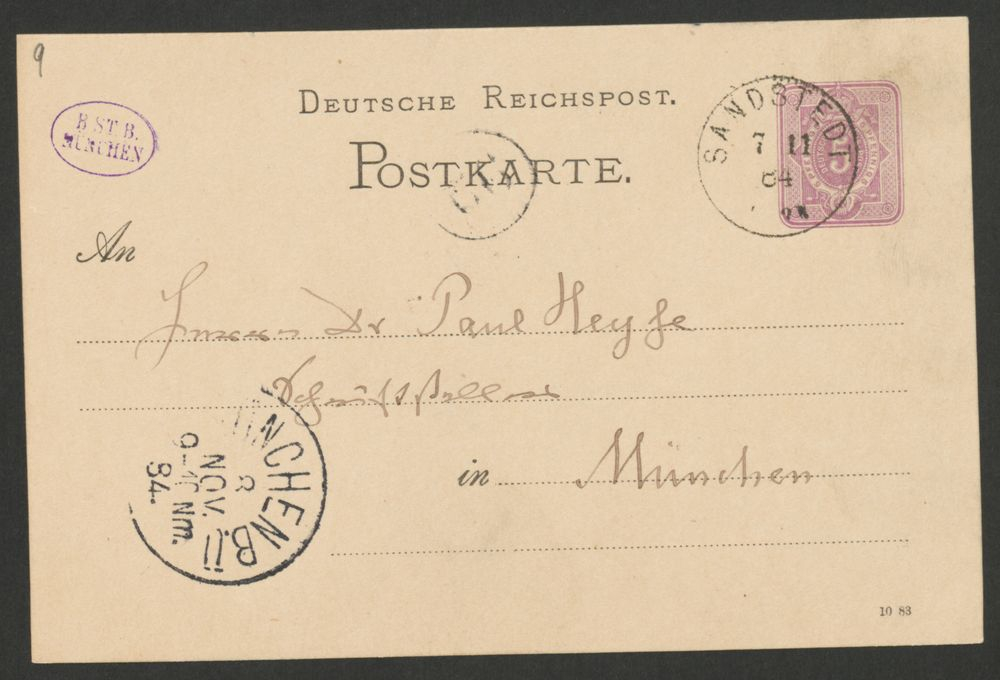 9
DEUTSCHE REICHSPOST.
B. ST. B.
MÜNCHEN
POSTKARTE.
SANDSTEDT
7 11
84
5
An
Herrn Dr Paul Heyse
Schriftsteller
in München
MÜNCHEN B.II
8
NOV.
9-10 Nm.
84.
10 83